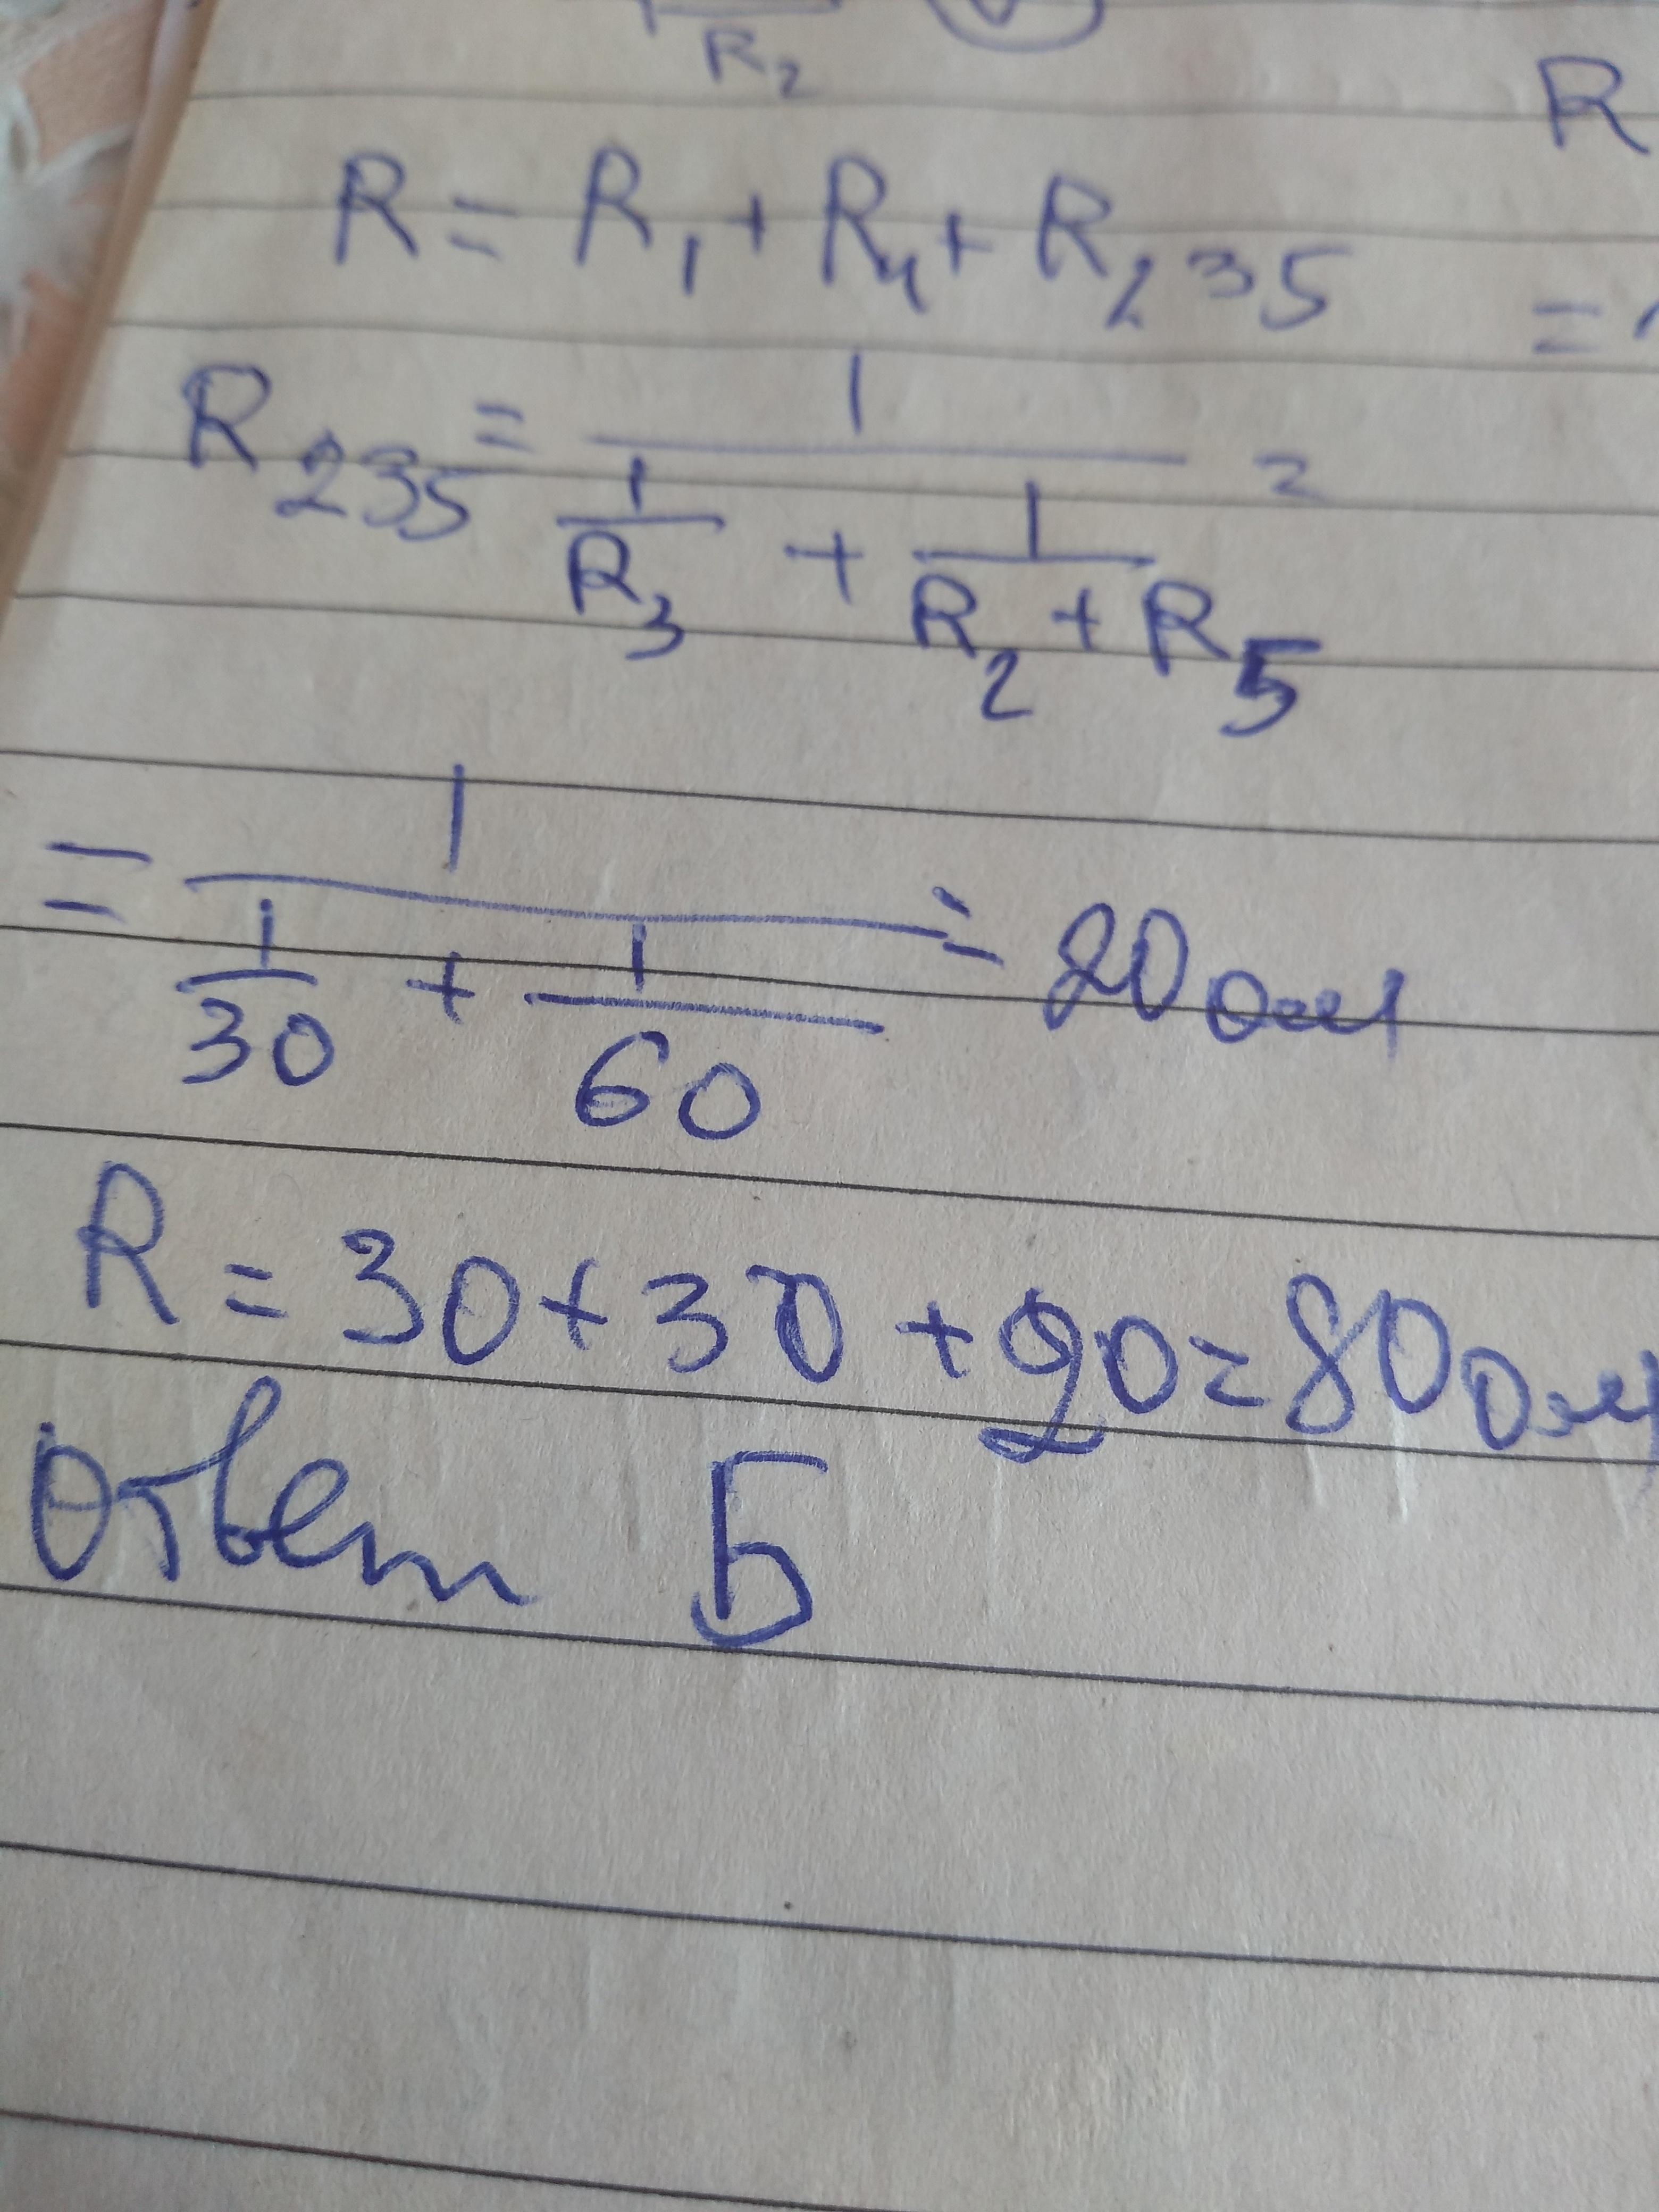 R₂
R
R = R₁ + R₄ + R₂₃₅
=
R₂₃₅ = 1 / (1/R₃ + 1/(R₂ + R₅)) =
= 1 / (1/30 + 1/60) = 20 Ом
R = 30 + 30 + 20 = 80 Ом
Ответ Б